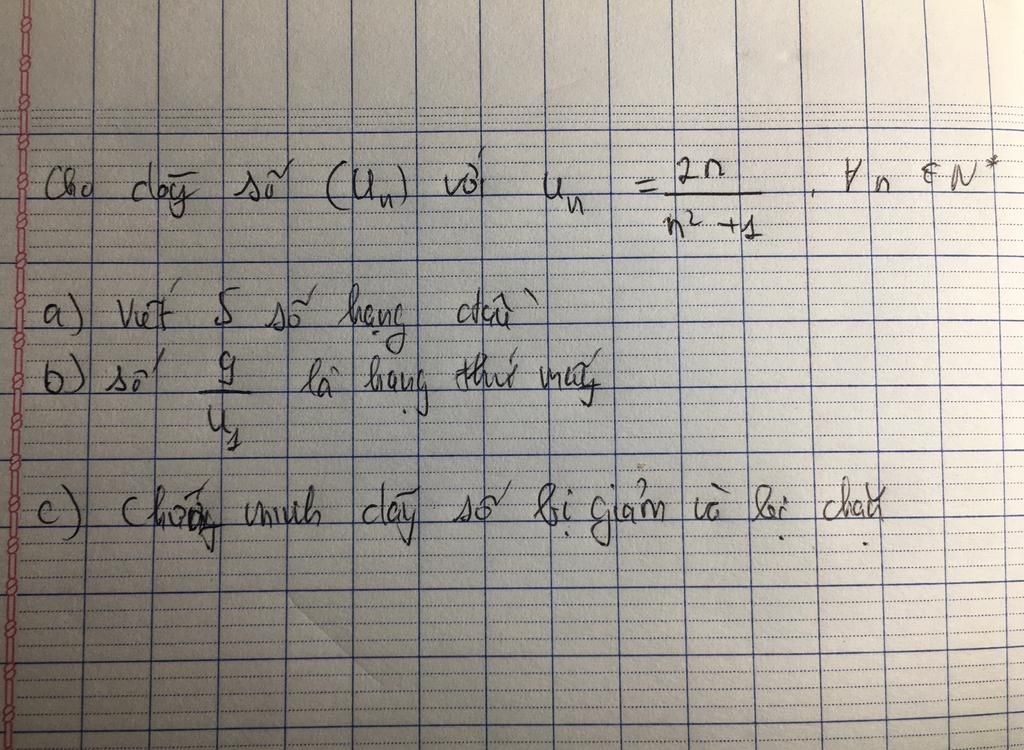 Cho dãy số (Un) với un = 2n / n² + 1 , ∀n ∈ N*
a) Viết 5 số hạng đầu
b) số 9 / 41 là hạng thứ mấy
c) Chứng minh dãy số bị giảm và bị chặn